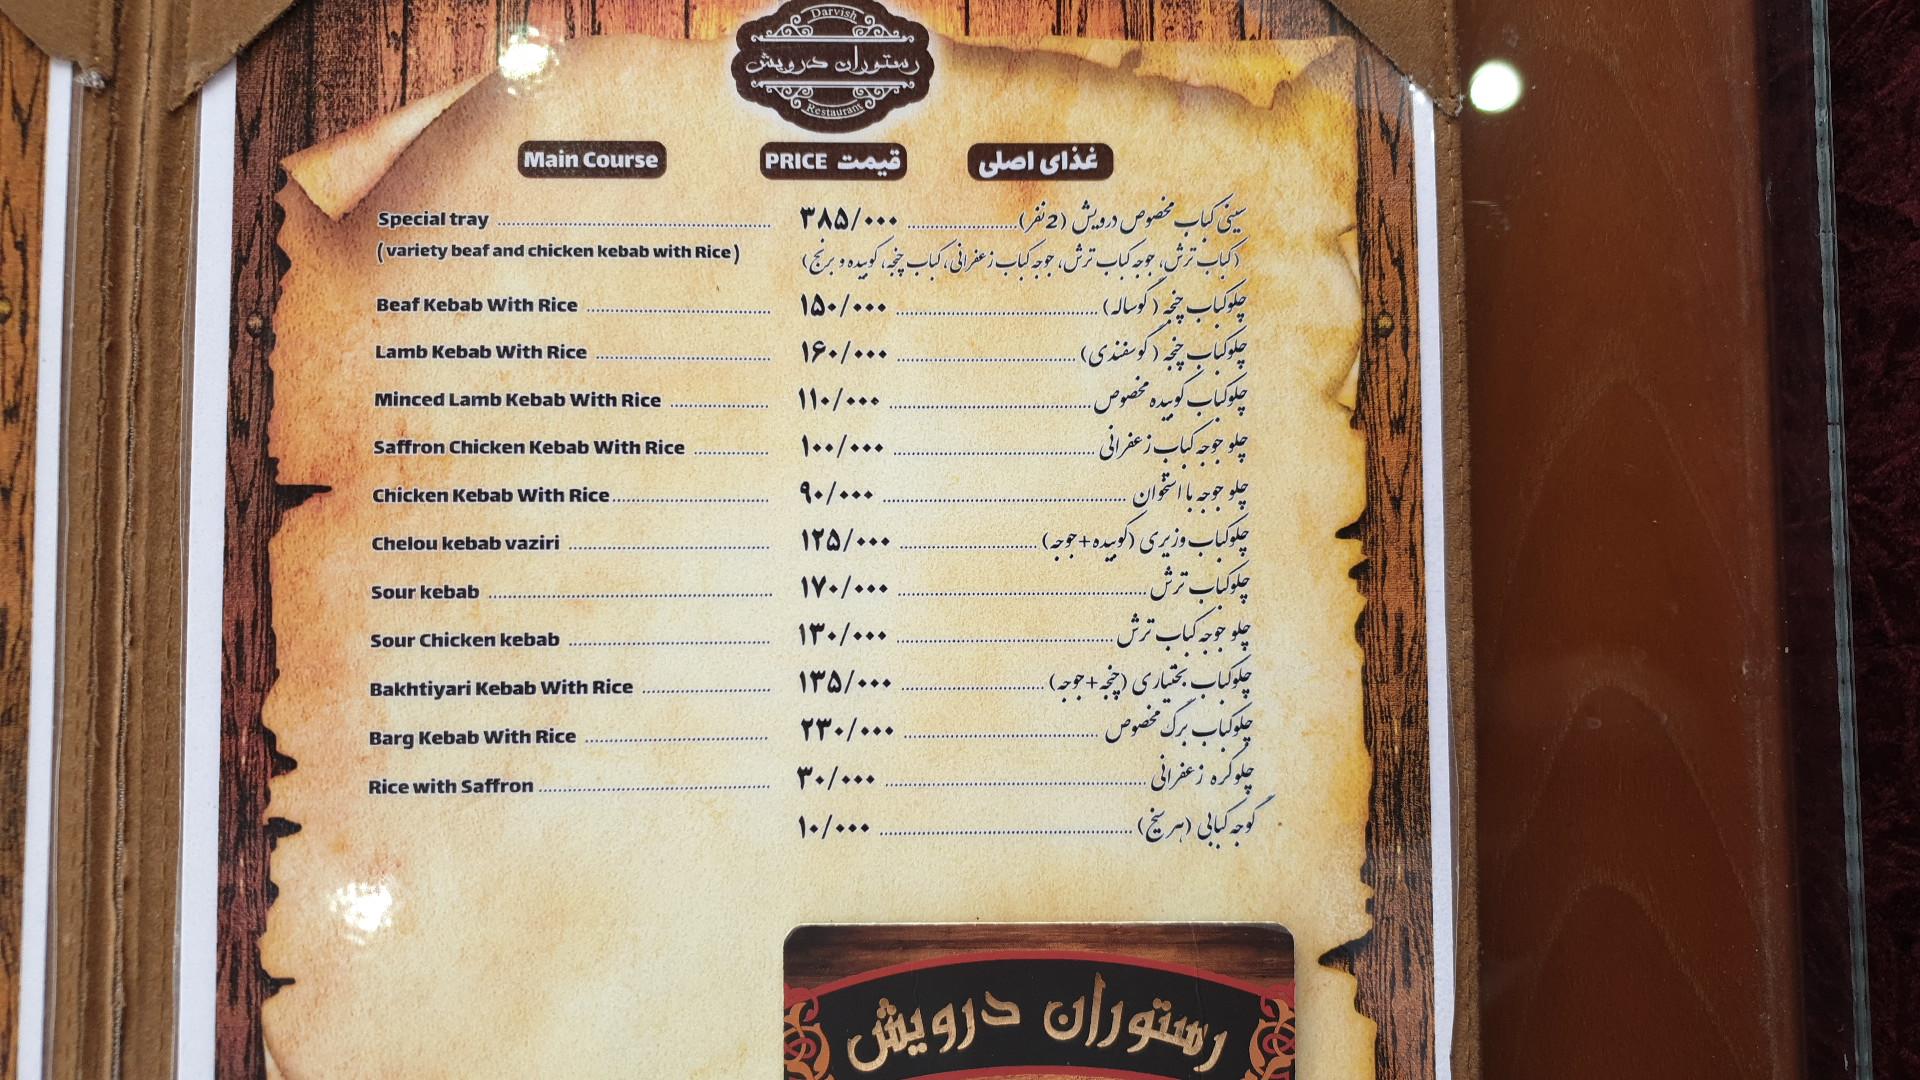 Darvish
رستوران درویش
Restaurant
Main Course PRICE قیمت غذای اصلی
Special tray ۳۸۵/۰۰۰ سینی کباب مخصوص درویش (2 نفر)
( variety beaf and chicken kebab with Rice ) (کباب ترش، جوجه کباب ترش، جوجه کباب زعفرانی، کباب چنجه، کوبیده و برنج)
Beaf Kebab With Rice ۱۵۰/۰۰۰ چلوکباب چنجه (گوساله)
Lamb Kebab With Rice ۱۶۰/۰۰۰ چلوکباب چنجه (گوسفندی)
Minced Lamb Kebab With Rice ۱۱۰/۰۰۰ چلوکباب کوبیده مخصوص
Saffron Chicken Kebab With Rice ۱۰۰/۰۰۰ چلو جوجه کباب زعفرانی
Chicken Kebab With Rice ۹۰/۰۰۰ چلو جوجه با استخوان
Chelou kebab vaziri ۱۲۵/۰۰۰ چلوکباب وزیری (کوبیده+جوجه)
Sour kebab ۱۷۰/۰۰۰ چلوکباب ترش
Sour Chicken kebab ۱۳۰/۰۰۰ چلو جوجه کباب ترش
Bakhtiyari Kebab With Rice ۱۳۵/۰۰۰ چلوکباب بختیاری (چنجه+جوجه)
Barg Kebab With Rice ۲۳۰/۰۰۰ چلوکباب برگ مخصوص
Rice with Saffron ۳۰/۰۰۰ چلوکره زعفرانی
۱۰/۰۰۰ گوجه کبابی (هر سیخ)
رستوران درویش